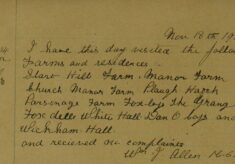 Nov 18th 19
I have this day visited the follow
Farms and residences.
Start Hill Farm. Manor Farm
Church Manor Farm Plaugh Harsh
Parsonage Farm Foxleys The Grang
Fox dells White Hall Dan O bays and
Wickham Hall.
and recieved no complaines
Wm J Allen